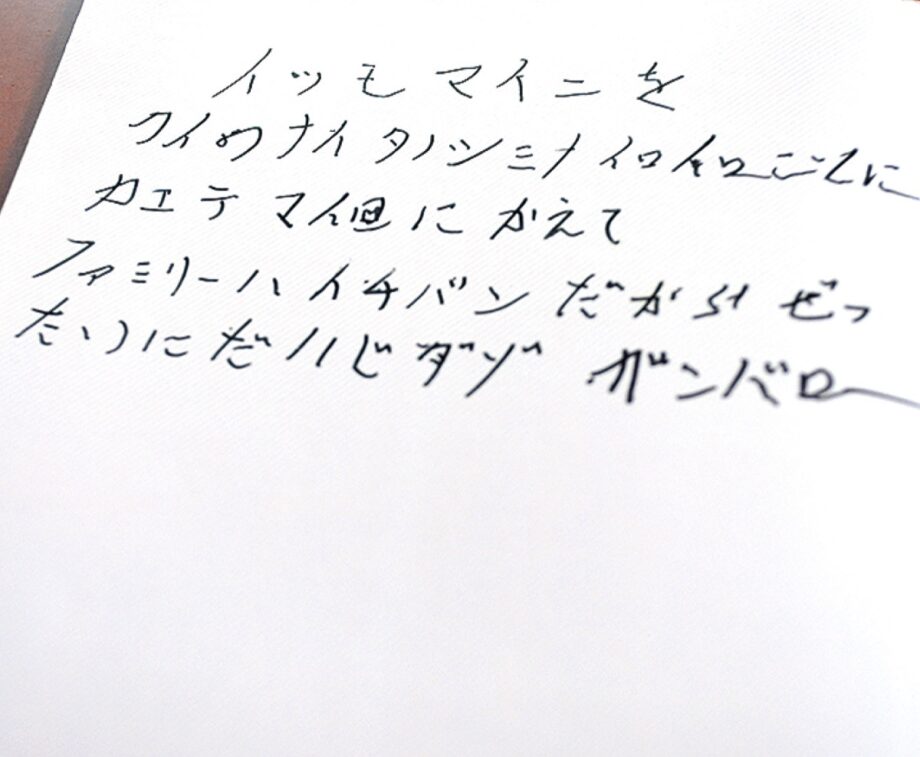 イツモマイニを
クイのナイタノシミナイロイロことに
カエテマイ回にかえて
ファミリーハイチバンだからぜっ
たいにだハじダゾガンバロー